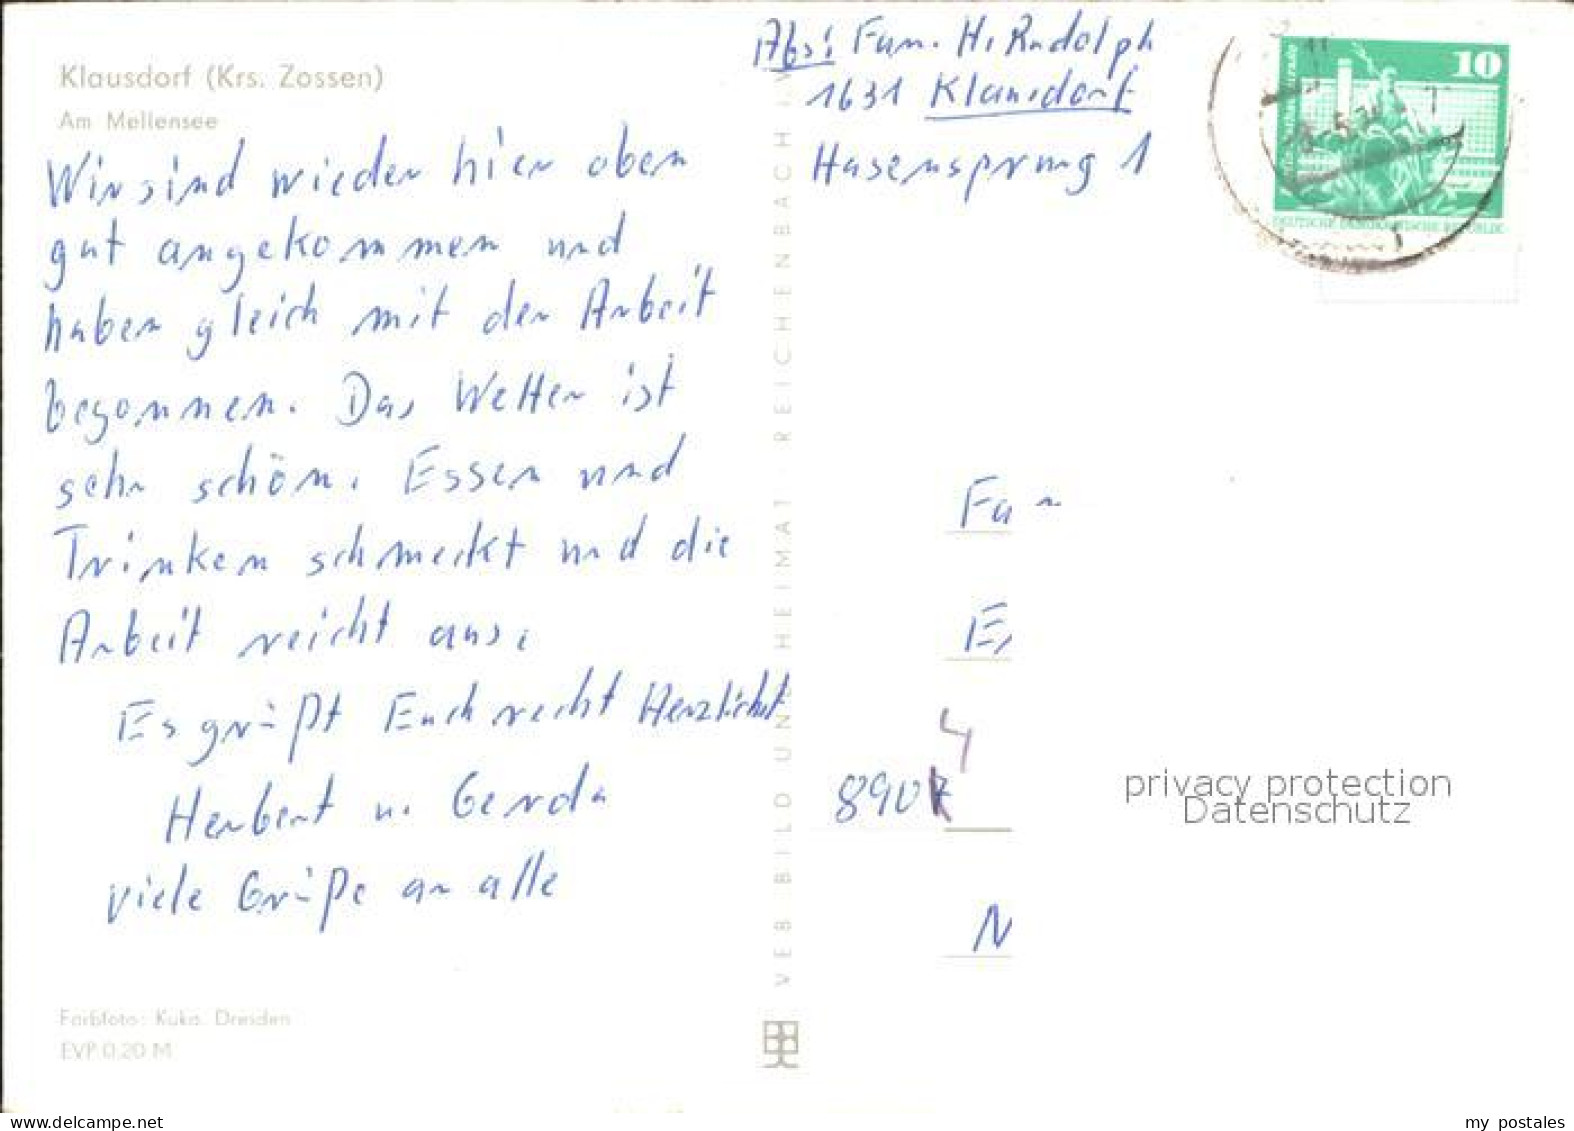 Klausdorf (Krs. Zossen)
Am Mellensee
Wir sind wieder hier oben
gut angekommen und
haben gleich mit der Arbeit
begonnen. Das Wetter ist
sehr schön. Essen und
Trinken schmeckt und die
Arbeit reicht aus.
Es grüßt Euch recht Herzlichst
Herbert u. Gerda
viele Grüße an alle
Farbfoto: Kuka, Dresden
EVP 0.20 M
VEB BILD UND HEIMAT REICHENBACH I. V.
Abs: Fam. H. Rudolph
1631 Klausdorf
Hasensprung 1
10
DEUTSCHE DEMOKRATISCHE REPUBLIK
Fa
E
4
890
N
privacy protection
Datenschutz
www.delcampe.net
my_postales